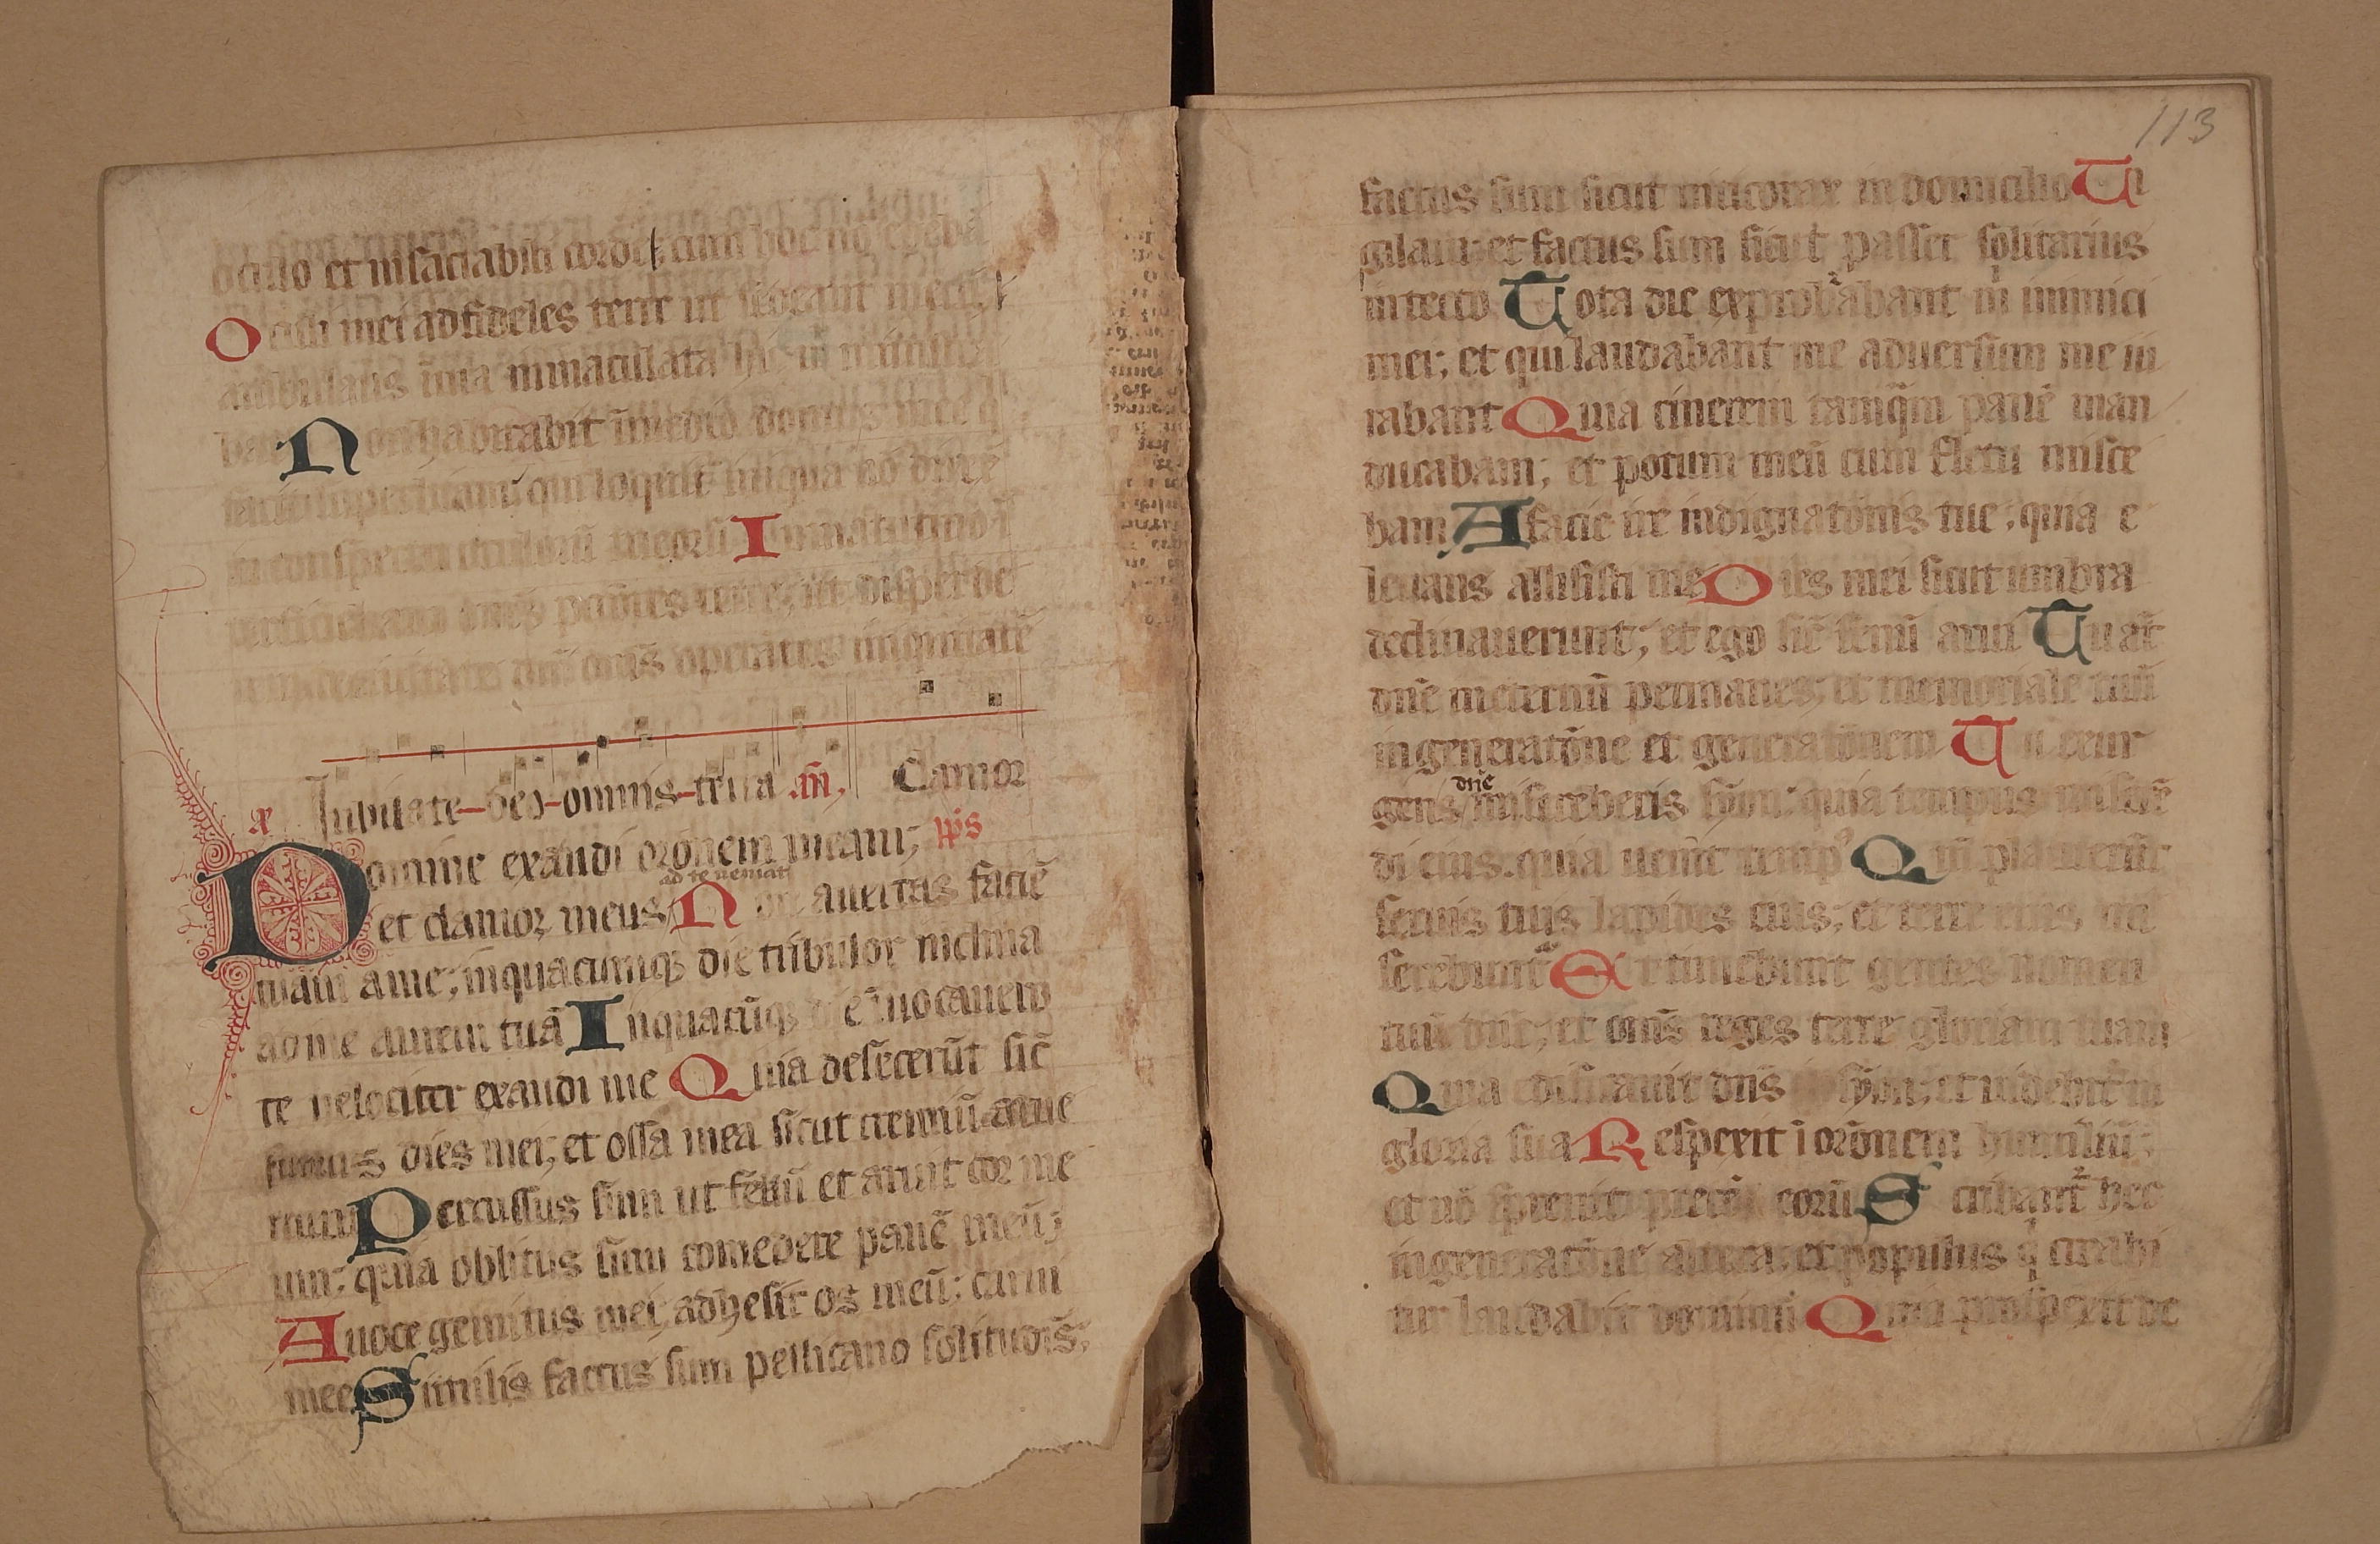 oculo et insaciabili corde cum hoc nō edebā
Oculi mei ad fideles terre ut sedeant mecū
ambulans ī uia inmaculata hic m̄ ministra
bat Non habitabit ī medio domus mee q̄
facit superbiam qui loquit̄ iniqua nō direx̄
in conspectu oculorū meorū In matutino ī
terficiebam om̄es peccatores terre ut disperdē
de ciuitate dn̄i om̄s operātes iniquitatē
Iubilate deo omnis terra Clamor
Domine exaudi orōnem meam; ps
et clamor meus ad te ueniat Non auertas faciē
tuam a me; in quacumq; die tribulor inclina
ad me aurem tuā In quacūq; die īuocauero
te uelociter exaudi me Quia defecerūt sic̄
fumus dies mei; et ossa mea sicut cremiū arue
runt Percussus sum ut fenū et aruit cor me
um: quia oblitus sum comedere panē meū;
A uoce gemitus mei adhesit os meū: carni
mee Similis factus sum pellicano solitudīs;
113
factus sum sicut nicticorax in domicilio Ui
gilaui et factus sum sicut passer solitarius
in tecto Tota die exprobrabant m̄ inimici
mei; et qui laudabant me aduersum me iu
rabant Quia cinerem tamq̄m panē man
ducabam; et potum meū cum fletu misce
bam A facie ire indignatōnis tue; quia e
leuans allisisti me Dies mei sicut umbra
declinauerunt; et ego sic̄ fenū arui Tu aūt
dn̄e in eternū permanes; et memoriale tuū
in generatōne et generatōnem Tu exur
gens dn̄e misereberis syon: quia tempus misere
di eius. quia uenit temp⁹ Qm̄ placuerūt
seruis tuis lapides eius; et terre eius mi
serebunt̄ Et timebunt gentes nomen
tuū dn̄e; et om̄s reges terre gloriam tuam
Quia edificauit dn̄s syon; et uidebit̄ in
gloria sua Respexit ī orōnem humiliū;
et nō spreuit precē eorū Scribant̄ hec
in generatōne altera: et populus q̄ creabi
tur laudabit dominū Quia prospexit de